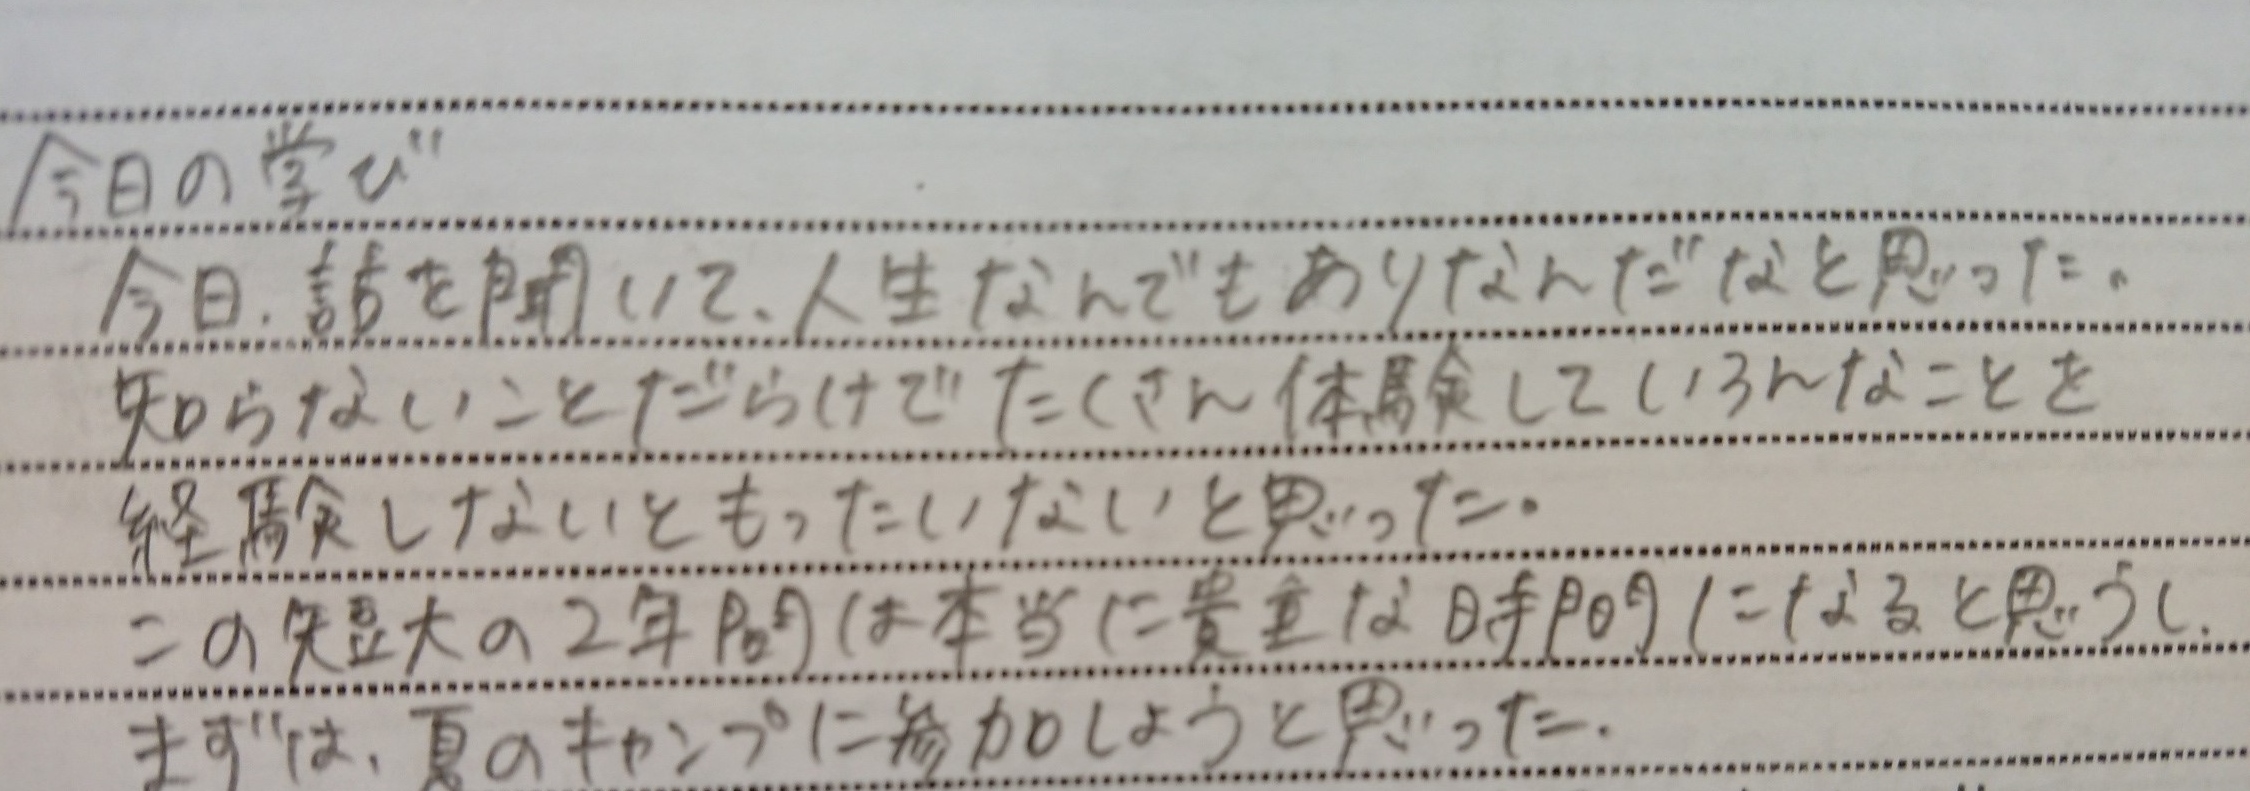 今日の学び
今日、話を聞いて、人生なんでもありなんだなと思った。
知らないことだらけでたくさん体験していろんなことを
経験しないともったいないと思った。
この短大の2年間は本当に貴重な時間になると思うし、
まずは、夏のキャンプに参加しようと思った。